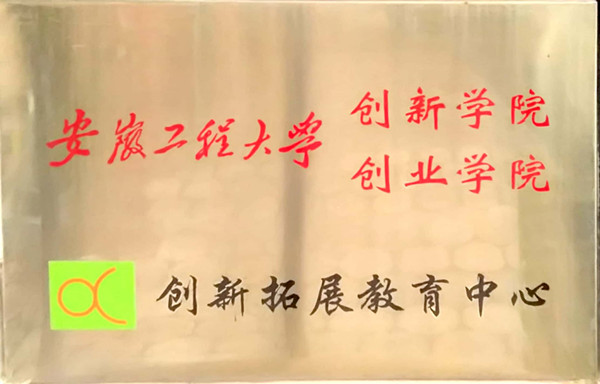 安徽工程大学
创新学院
创业学院
创新拓展教育中心